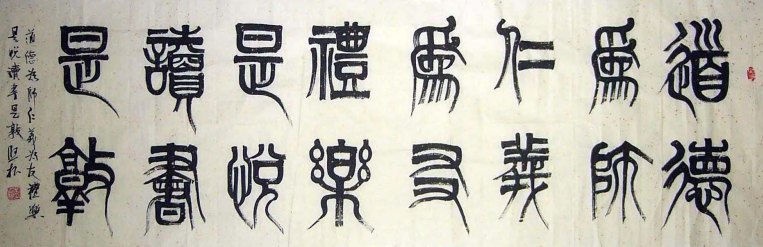 道德
為師
仁義
為友
禮樂
是悅
讀書
是敦
道德為師仁義為友禮樂
是悅讀書是敦